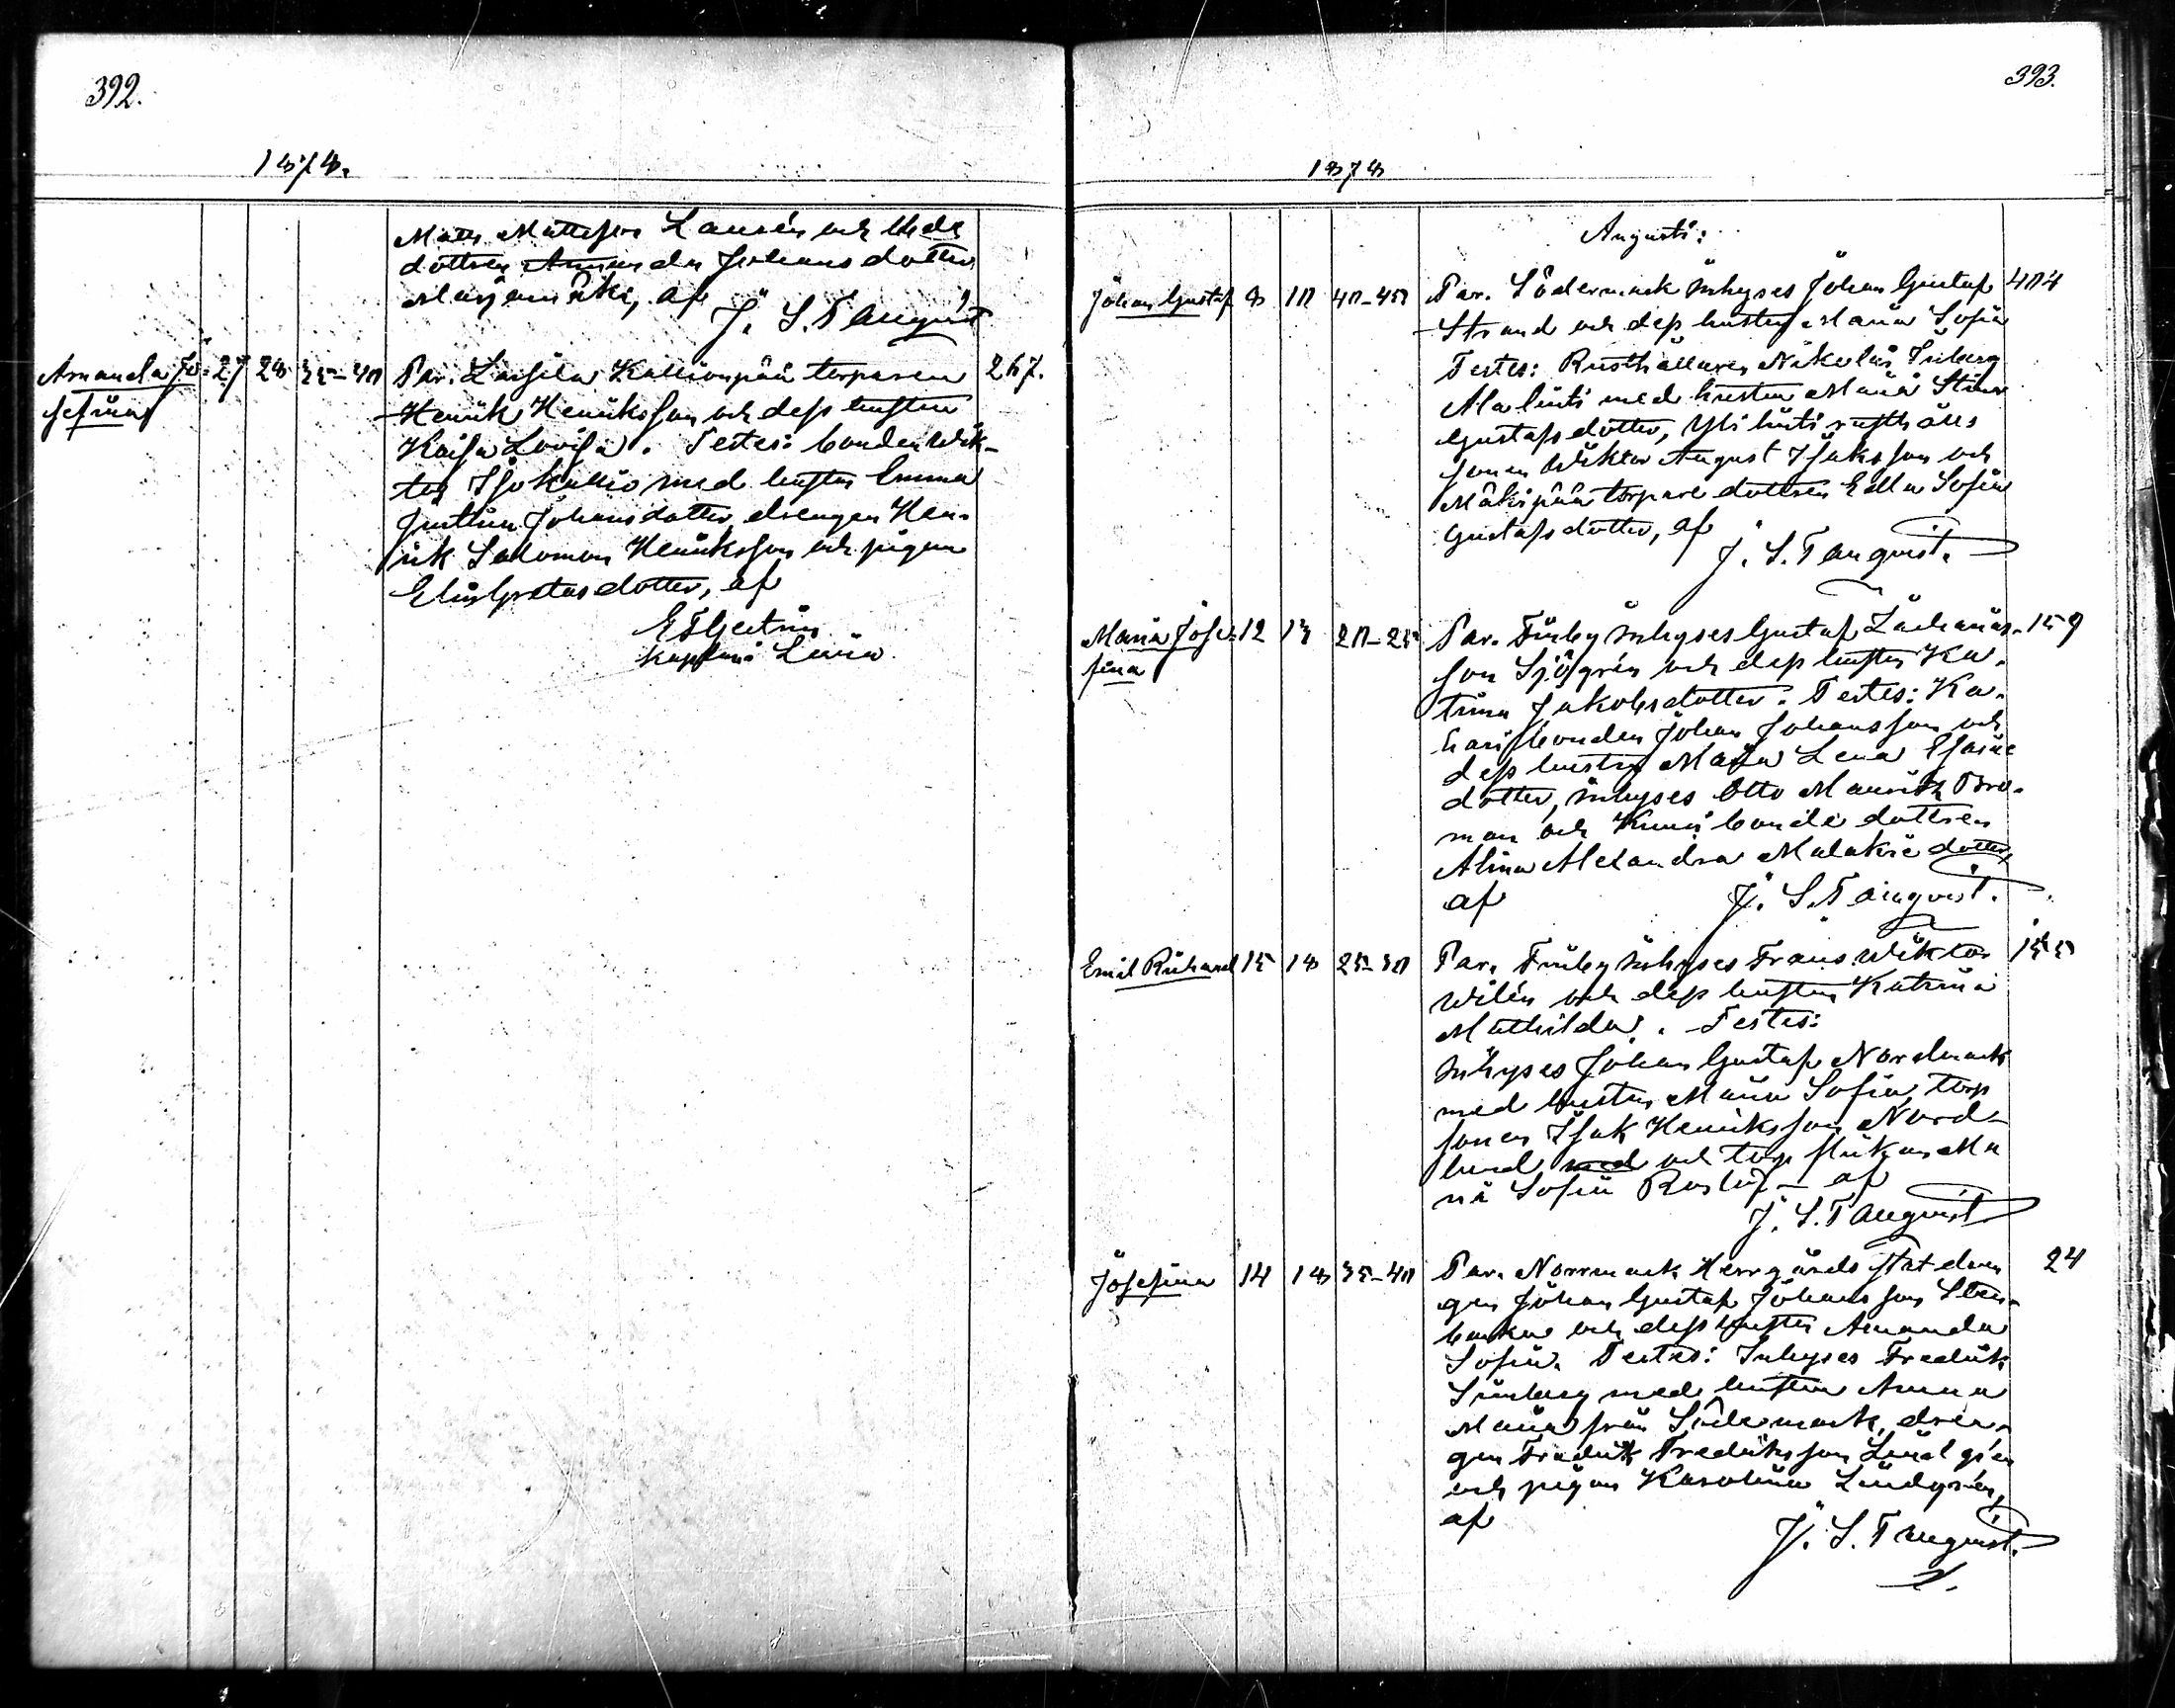 392.
1878.
Matts Mattsson Laurén och
dottren Amanda Johansdotter
af
J. S. Tanqvist
Amanda Jo- 27 28 35-40 Par. Lassila Kallionpää torparen 267.
sefina
Henrik Henriksson och dess hustru
Kaisa Lovisa. Testes: bonden Wik-
tor Isokallio med hustru Emma
Justina Johansdotter, drengen Hen-
rik Salomon Henriksson och pigan
af
Kapellani
393.
1878
Augusti:
Johan Gustaf 8 10 40-45 Par. Södermark Inhyses Johan Gustaf 404
Strand och dess hustru Maria Sofia
Testes: Rusthållaren Nikolai Friberg
Ala med hustru Maria Stina
Gustafsdotter, Yli rusthålls
sonen Wiktor August Isaksson och
Mäkipää torpare dottren Edla Sofia
Gustafsdotter, af
J. S. Tanqvist.
Maria Jose- 12 13 20-25 Par. Finby Inhyses Gustaf Zacharias- 159
fina
son Sjögrén och dess hustru Ka-
trina Jakobsdotter. Testes: Ka-
bonden Johan Johansson och
dess hustru Maja Lena Esaie
dotter, Inhyses Otto Mauritz Bro-
man och bonde dottren
Alina Alexandra Malakie dotter,
af J. S. Tanqvist.
Emil Richard 15 18 25-30 Par. Finby Inhyses Frans Wiktor 155
Wilén och dess hustru Katrina
Mathilda. Testes:
Inhyses Johan Gustaf Nordmark
med hustru Maria Sofia, torp
sonen Isak Henriksson Nord-
lund med och torp flickan Ma
ria Sofia af
J. S. Tanqvist
Josefina 14 18 35-40 Par. Norrmark Herrgårds stat dren 24
gen Johan Gustaf Johansson Sten-
backa och dess hustru Amanda
Sofia. Testes: Inhyses Fredrik
med hustru Anna
Maria från Södermark, dren-
gen Fredrik Fredriksson Lindgrén
och pigan Karolina Lindgrén,
af
J. S. Tanqvist.